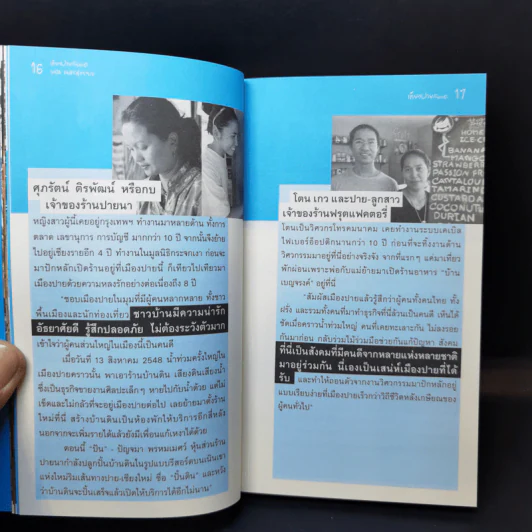 16
ศุภรัตน์ ดิรพัฒน์ หรือกบ
เจ้าของร้านปายนา
หญิงสาวผู้นี้เคยอยู่กรุงเทพฯ ทำงานมาหลายด้าน ทั้งการ
ตลาด เลขานุการ การบัญชี มากกว่า 10 ปี จากนั้นจึงย้าย
ไปอยู่เชียงรายอีก 4 ปี ทำงานในมูลนิธิกระจกเงา ก่อนจะ
มาปักหลักเปิดร้านอยู่ที่เมืองปายนี้ ก็เทียวไปเทียวมา
เมืองปายด้วยความหลงรักอย่างต่อเนื่องถึง 8 ปี
"ชอบเมืองปายในมุมที่มีผู้คนหลากหลาย ทั้งชาว
พื้นเมืองและนักท่องเที่ยว ชาวบ้านมีความน่ารัก
อัธยาศัยดี รู้สึกปลอดภัย ไม่ต้องระวังตัวมาก
เข้าใจว่าผู้คนส่วนใหญ่ในเมืองนี้เป็นคนดี
เมื่อวันที่ 13 สิงหาคม 2548 น้ำท่วมครั้งใหญ่ใน
เมืองปายคราวนั้น พาเอาร้านบ้านดิน เสียงดินเสียงน้ำ
ซึ่งเป็นธุรกิจขายงานศิลปะเล็กๆ หายไปกับน้ำด้วย แต่ไม่
เข็ดและไม่กลัวที่จะอยู่เมืองปายต่อไป เลยย้ายมาตั้งร้าน
ใหม่ที่นี่ สร้างบ้านดินเป็นห้องพักให้บริการอีกสี่หลัง
นอกจากจะเพิ่มรายได้แล้วยังมีเพื่อนแก้เหงาได้ด้วย
ตอนนี้ "ปิ่น" - ปัญจมา พรหมเมศว์ หุ้นส่วนร้าน
ปายนากำลังปลูกปั้นบ้านดินในรูปแบบรีสอร์ตบนเนินเขา
แห่งใหม่ริมเส้นทางปาย-เชียงใหม่ ชื่อ "ปั้นดิน" และหวัง
ว่าบ้านดินจะปั้นเสร็จแล้วเปิดให้บริการได้อีกไม่นาน"
17
BANANA
MANGO
STRAWBERRY
PASSION FR
CANTALOU
TAMARIN
CUSTARD
COCONUT
DURIAN
โตน เกว และปาย-ลูกสาว
เจ้าของร้านฟรุตแฟคตอรี่
โตนเป็นวิศวกรโทรคมนาคม เคยทำงานระบบเคเบิล
ไฟเบอร์อ็อปติกนานกว่า 10 ปี ก่อนที่จะทิ้งงานด้าน
วิศวกรรมมาอยู่ที่นี่อย่างจริงจัง จากที่แรกๆ แค่มาเที่ยว
พักผ่อนเพราะพ่อกับแม่ย้ายมาเปิดร้านอาหาร "บ้าน
เบญจรงค์" อยู่ที่นี่
"สัมผัสเมืองปายแล้วรู้สึกว่าผู้คนทั้งคนไทย ทั้ง
ฝรั่ง และรวมทั้งคนที่มาทำธุรกิจที่นี่ล้วนเป็นคนดี เห็นได้
ชัดเมื่อคราวน้ำท่วมใหญ่ คนที่เคยทะเลาะกัน ไม่ลงรอย
กันมาก่อน กลับร่วมไม้ร่วมมือช่วยกันแก้ปัญหา สังคม
ที่นี่เป็นสังคมที่มีคนดีจากหลายแห่งหลายชาติ
มาอยู่ร่วมกัน นี่เองเป็นเสน่ห์เมืองปายที่ได้
รับ และทำให้ถอนตัวจากงานวิศวกรรมมาปักหลักอยู่
แบบเรียบง่ายที่เมืองปายเร็วกว่าวิถีชีวิตหลังเกษียณของ
ผู้คนทั่วไป"